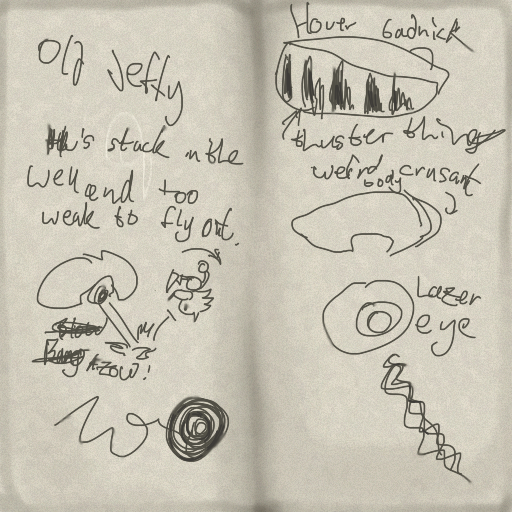 Old Jefly
He's stuck in the
Well and too
weak to fly out.
Kzow!
Hover Gadnick
thuster thing
weird crusant
body
Lazer
eye